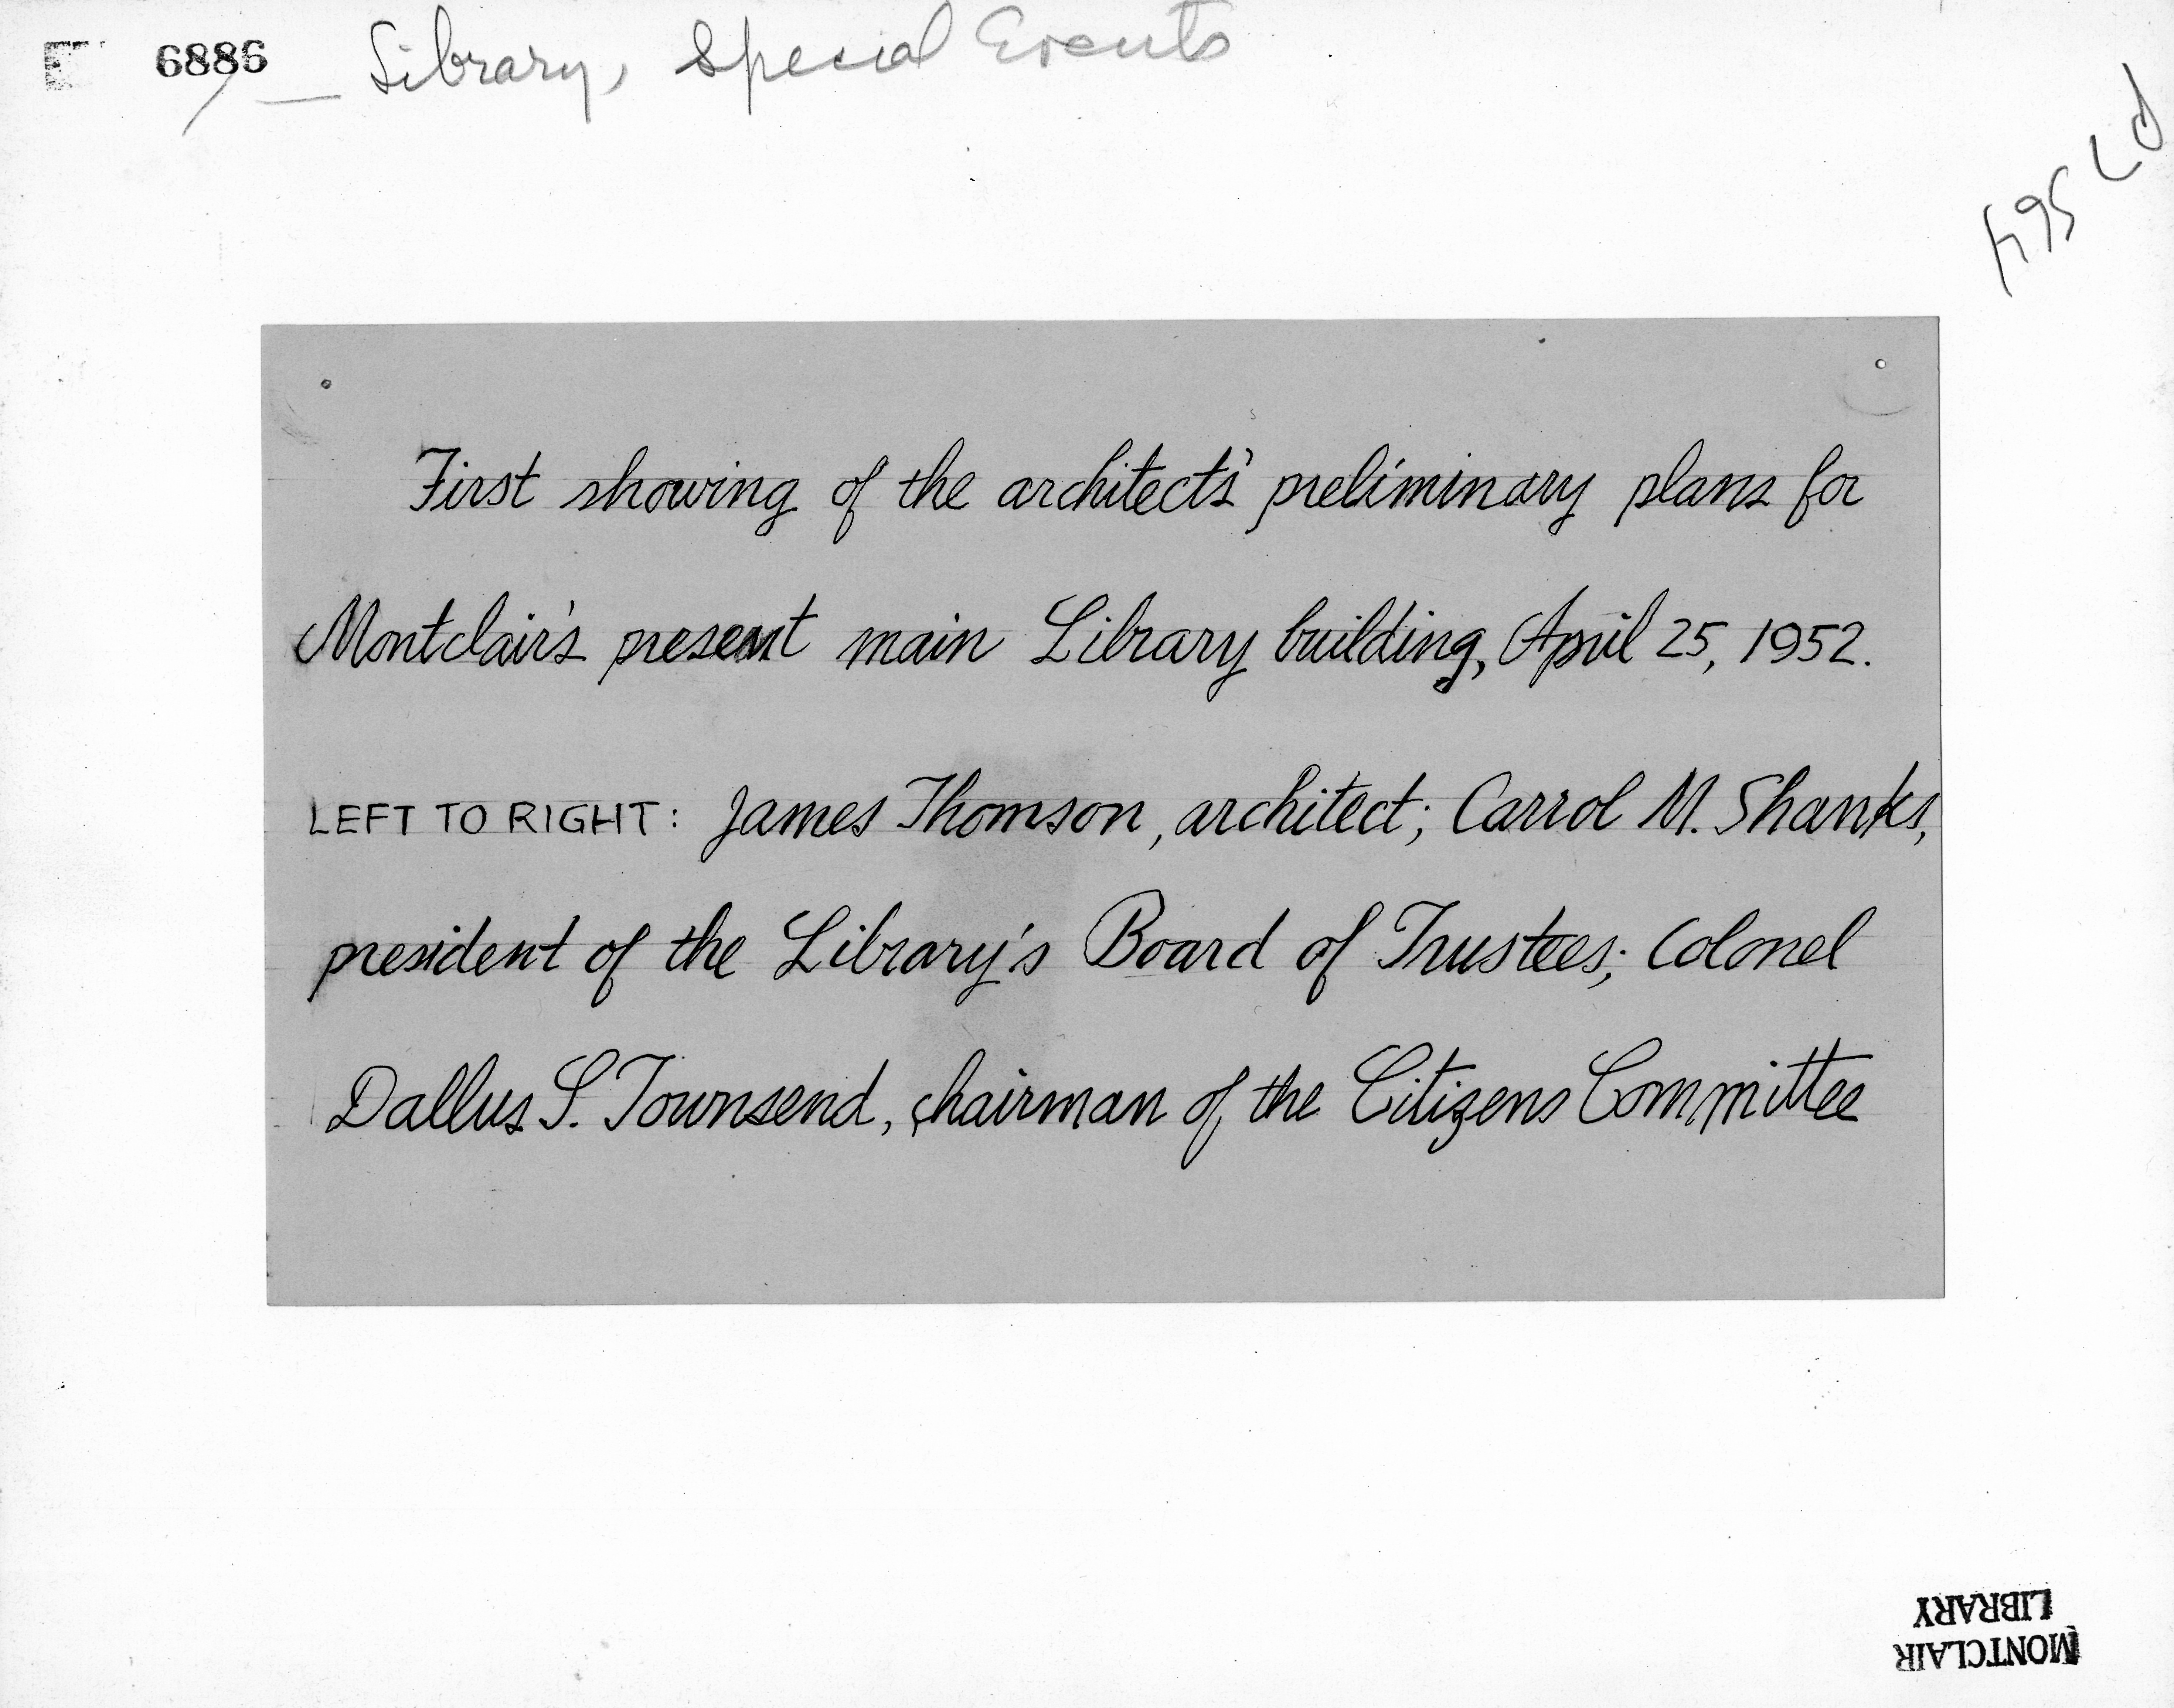 6886 — Library, Special Events
First showing of the architect's preliminary plans for
Montclair's present main Library building, April 25, 1952.
LEFT TO RIGHT: James Thomson, architect; Carrol M. Shanks,
president of the Library's Board of Trustees; Colonel
Dallus S. Townsend, chairman of the Citizens Committee
MONTCLAIR
LIBRARY